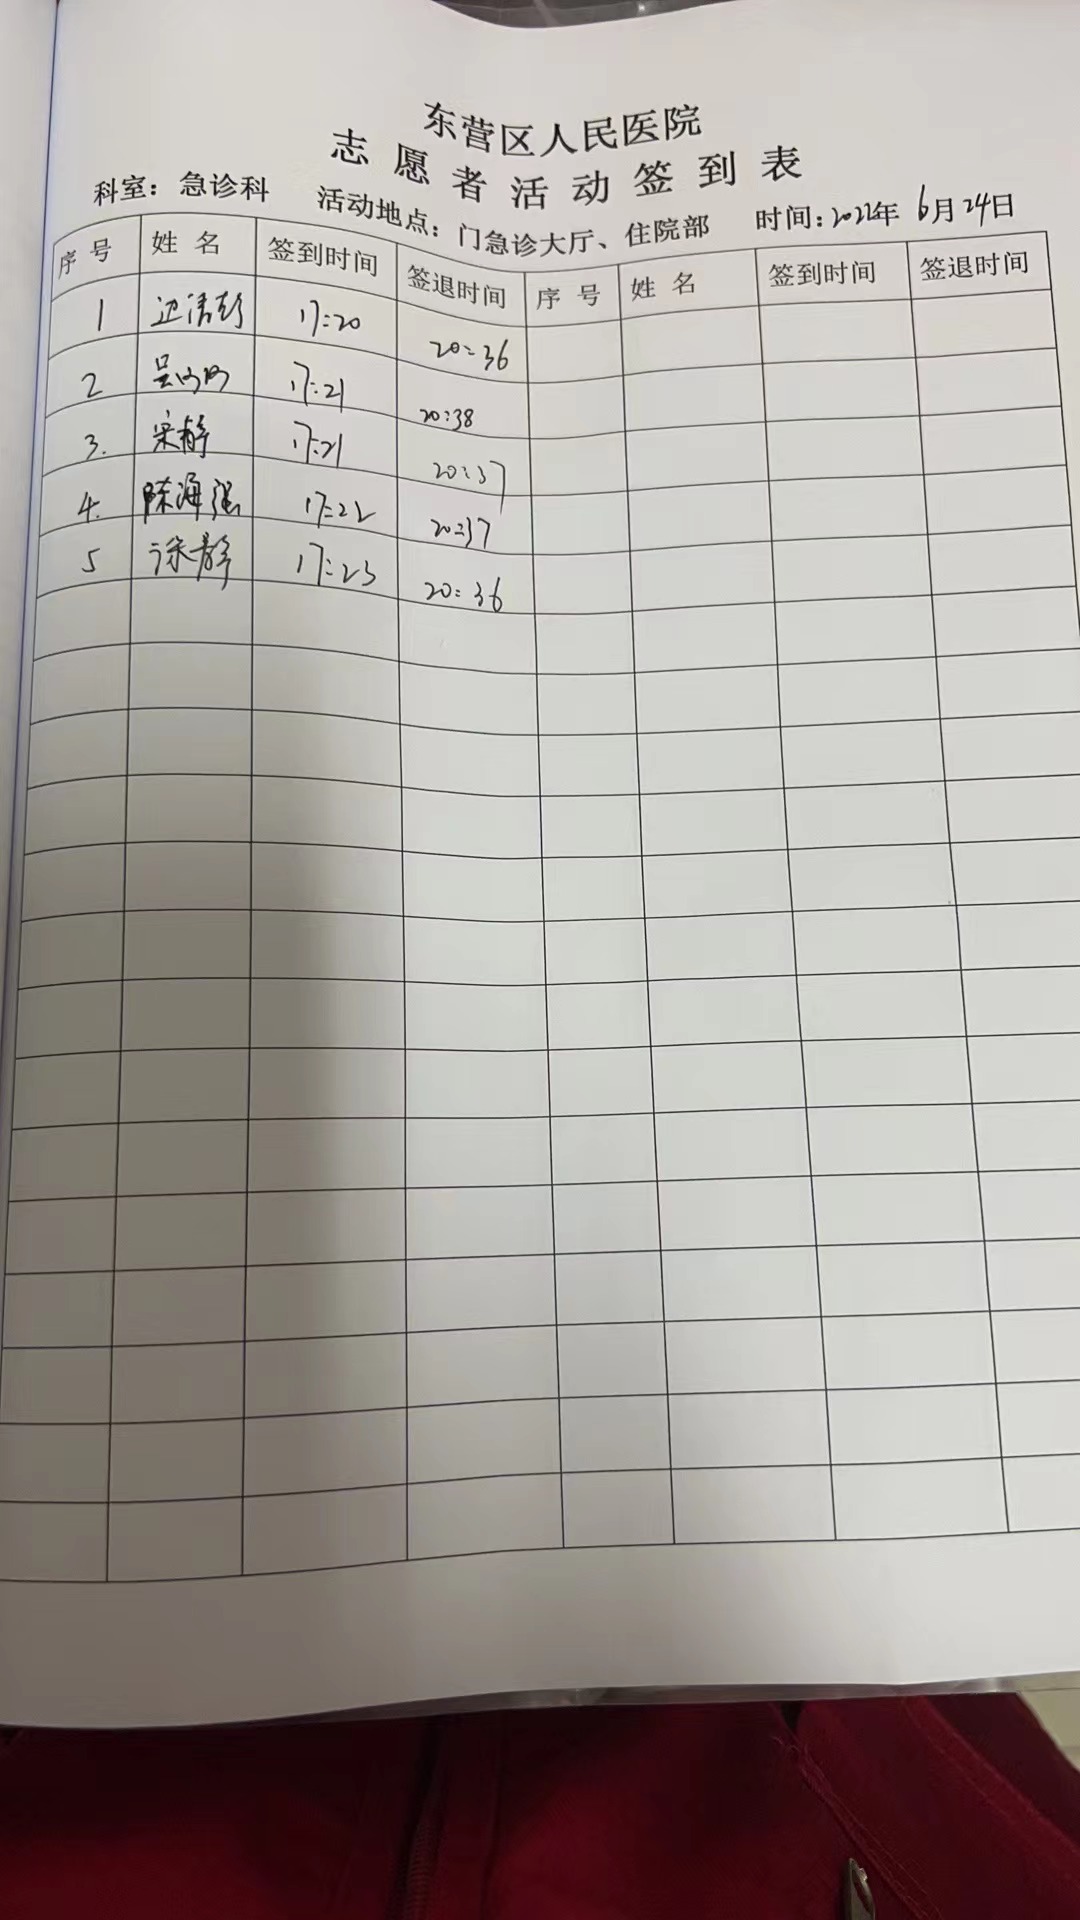 东营区人民医院
志愿者活动签到表
科室：急诊科 活动地点：门急诊大厅、住院部 时间：2022年6月24日
序号 姓名 签到时间 签退时间 序号 姓名 签到时间 签退时间
1 边清彭 17:20 20:36
2 吴 17:21 20:38
3. 宋静 17:21 20:37
4. 陈海强 17:22 20:37
5 徐静 17:23 20:36